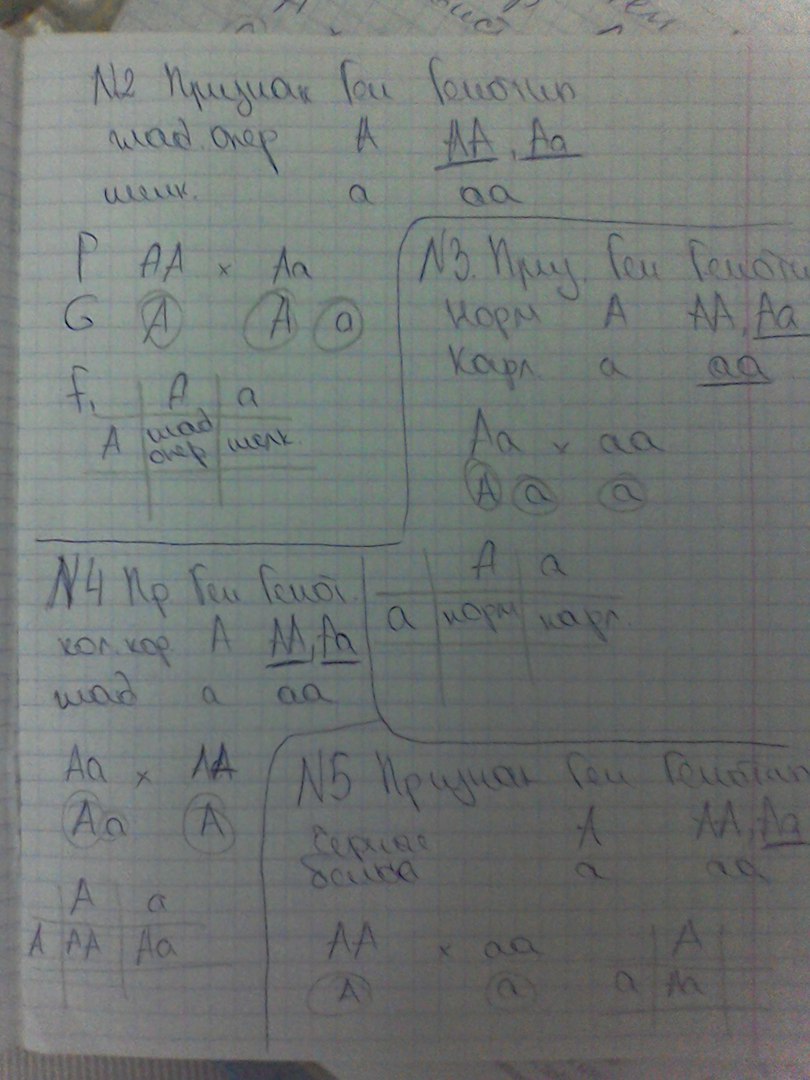 N2 Признак Ген Генотип
глад. опер A AA, Aa
шелк. a aa
P AA × Aa
G A A a
F₁ A a
A глад опер шелк.
N3. Призн. Ген Генотип
Норм A AA, Aa
Карл a aa
Aa × aa
A a a
A a
a норм карл
N4 Пр Ген Генот.
кол. кор A AA, Aa
глад a aa
Aa × AA
Aa A
A a
A AA Aa
N5 Признак Ген Генотип
Черные A AA, Aa
a aa
AA × aa A
A a a Aa